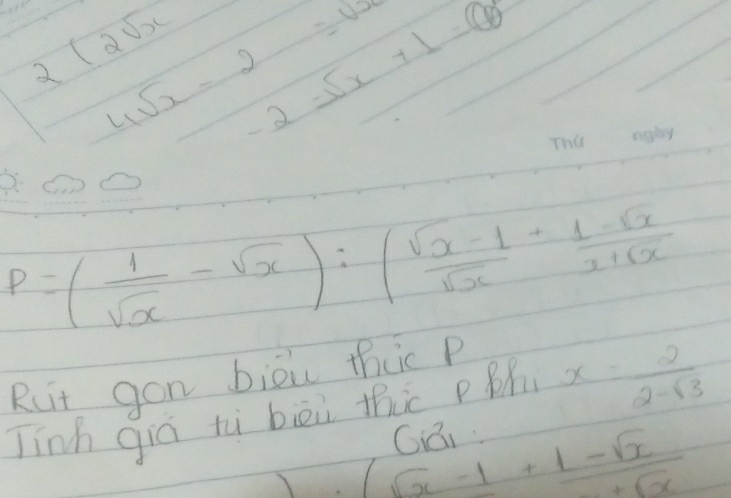 2 ( 2√x
4√x - 2 = √x
- 2 - √x + 1
Thứ ngày
P = ( 1/√x - √x ) : ( (√x - 1)/√x + (1 - √x)/(x + √x)
Rút gọn biểu thức P
Tính giá trị biểu thức P khi x = 2/(2-√3)
Giải:
) : ( √x - 1 + 1 - √x
+ √x